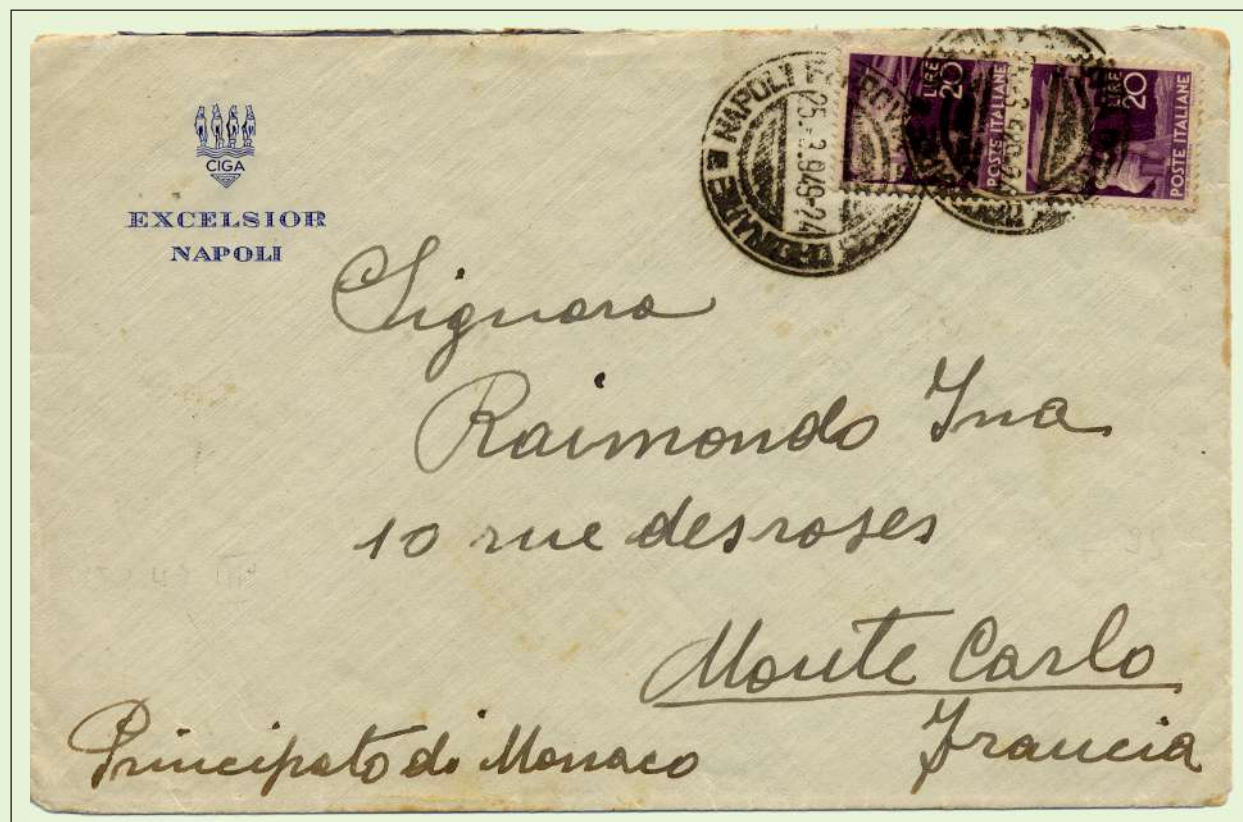 CIGA
EXCELSIOR
NAPOLI
NAPOLI
25. 3.949-24
LIRE
20
POSTE ITALIANE
LIRE
20
POSTE ITALIANE
Signora
Raimondo Ina
10 rue des roses
Monte Carlo
Francia
Principato di Monaco